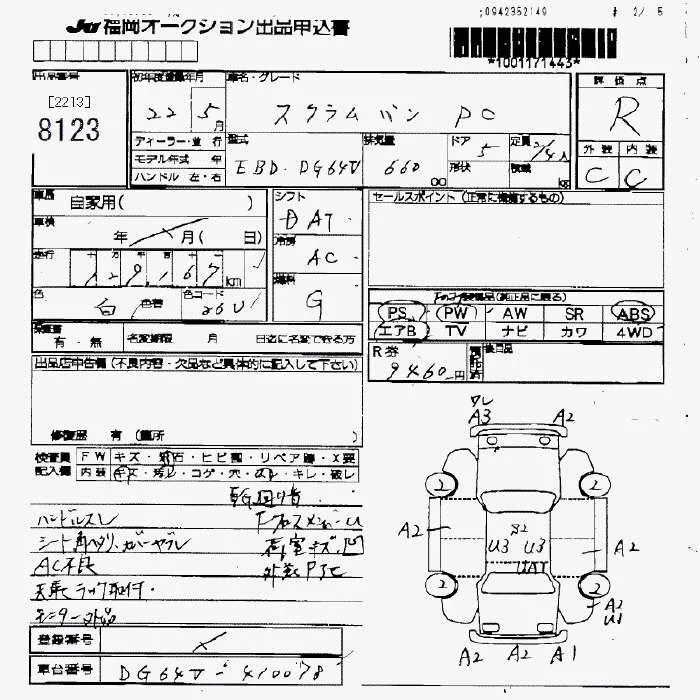 ;0942352149 # 2/ 5
JU 福岡オークション出品申込書
*1001171443*
出品番号 初年度登録年月 車名・グレード 評価点
[2213]
8123
22 5月 スクラムバン PC R
ディーラー・並行 型式 排気量 ドア 定員 外装 内装
モデル年式 年 EBD-DG64V 660 5 2/4人 C C
ハンドル 左・右 cc 形状 積載 kg
車歴 自家用( ) シフト セールスポイント (正常に機能するもの)
DAT
車検 年 月( 日) 冷房
走行 十 万 千 百 十 AC
129,167 km 燃料
色 白 色替 色コード 26U G
装備品(純正品に限る)
PS PW AW SR ABS
エアB TV ナビ カワ 4WD
保証書 有・無 名変期限 月 日迄に名変できる方
R券 9460円 預託済 後日品
出品店申告欄 (不良内容・欠品など具体的に記入して下さい)
修復歴 有 (箇所 )
検査員記入欄 FW キズ・飛石・ヒビ割・リペア跡・X要
内装 キズ・汚れ・コゲ・穴・スレ・キレ・破レ
ハンドルスレ
シート角ヘタリ、カバーヤブレ
AC不良
荷室キズ凹
モニター
登録番号
車台番号 DG64V-410078
ワレ
A3 A2
2 2
A2 S2 A2
U3 U3
UA1
2 2
A2
U1
A2 A2 A1